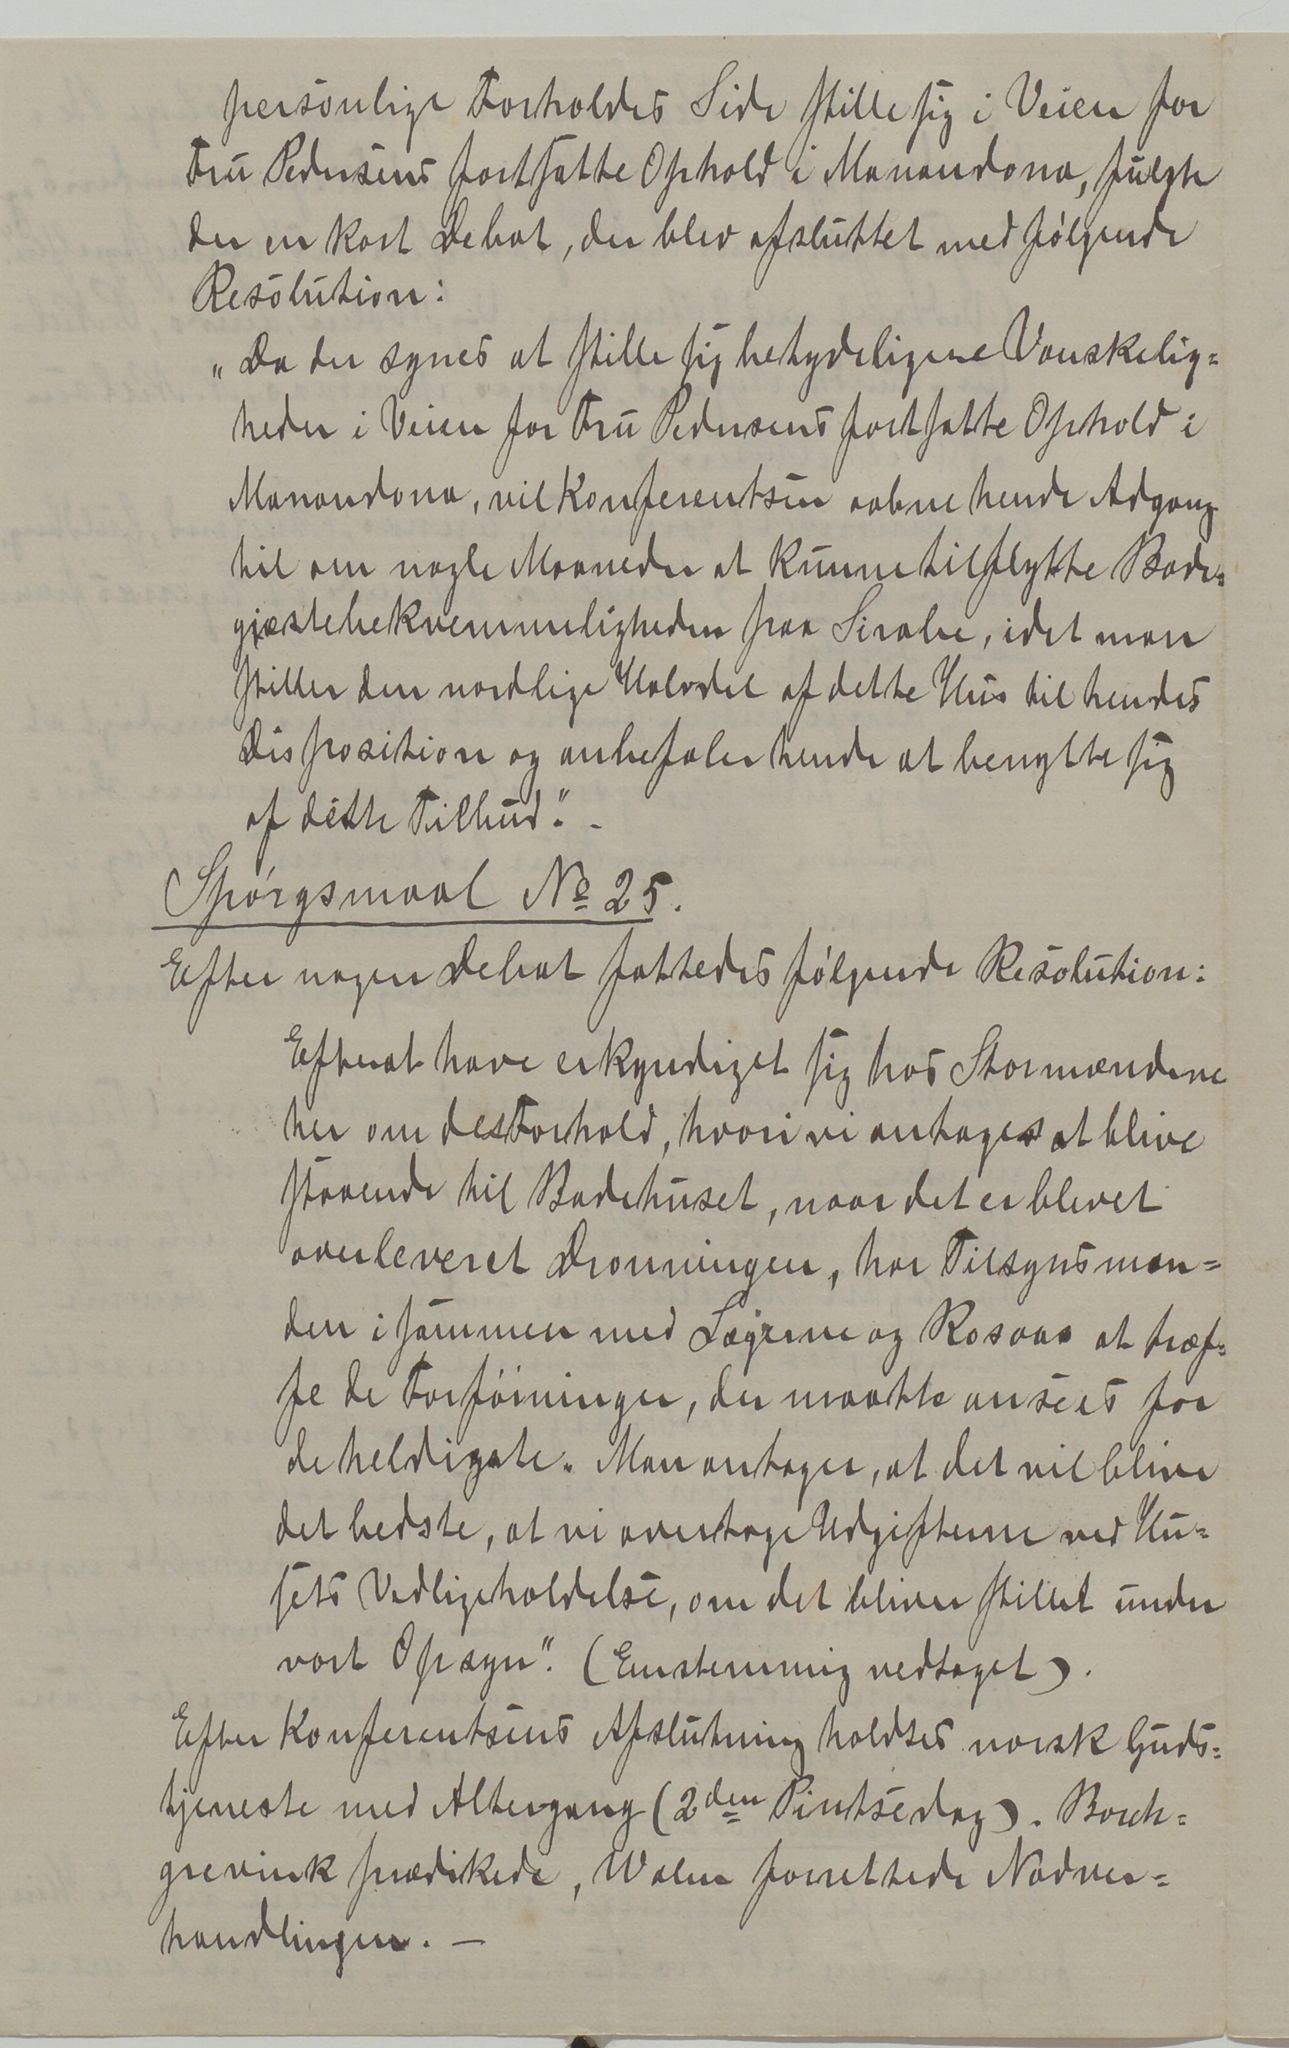 personlige Forholdes Side stille sig i Veien for
Fru Pedersens fortsatte Ophold i Manandona, fulgte
der en kort Debat, der blev afsluttet med følgende
Resolution:
"Da der synes at stille sig betydeligere Vanskelig=
heder i Veien for Fru Pedersens fortsatte Ophold i
Manandona, vil Konferentsen aabne hende Adgang
til om nogle Maaneder at kunne tilflytte Bade=
gjæstebekvemmeligheden paa Sirabe, idet man
stiller den nordlige Halvdel af dette Hus til hendes
Disposition og anbefaler hende at benytte sig
af dette Tilbud". -
Spørgsmaal No 25.
Efter nogen Debat fattedes følgende Resolution:
Efterat have erkyndiget sig hos Stormændene
her om det Forhold, hvori vi antages at blive
staaende til Badehuset, naar det er blevet
overleveret Dronningen, har Tilsynsman=
den i sammen med Lægerne og Rosaas at træf=
fe de Forføininger, der maatte ansees for
de heldigste. Man antager, at det vil blive
det bedste, at vi overtage Udgifterne ved Hu=
sets Vedligeholdelse, om det bliver stillet under
vort Opsyn". (Enstemmig vedtaget).
Efter Konferentsens Afslutning holdtes norsk Guds=
tjeneste med Altergang (2den Pintsedag). Borch=
grevink prædikede, Walen forrettede Nadver=
handlingen. —